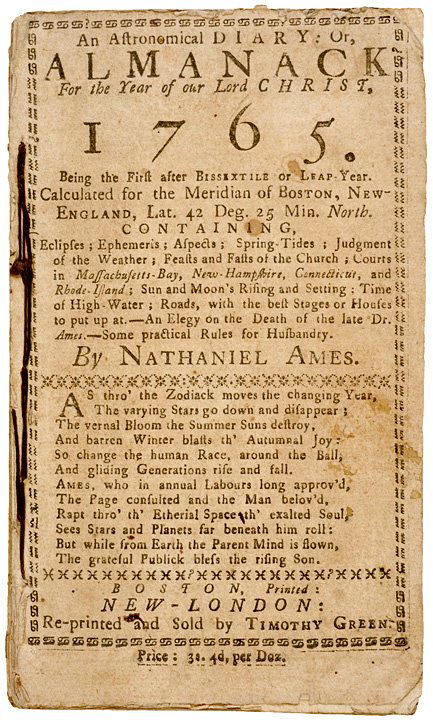 An Astronomical DIARY: Or,
ALMANACK
For the Year of our Lord CHRIST,
1765.
Being the First after BISSEXTILE or LEAP-Year.
Calculated for the Meridian of BOSTON, NEW-
ENGLAND, Lat. 42 Deg. 25 Min. North.
CONTAINING,
Eclipses; Ephemeris; Aspects; Spring-Tides; Judgment
of the Weather; Feasts and Fasts of the Church; Courts
in Massachusetts-Bay, New-Hampshire, Connecticut, and
Rhode-Island; Sun and Moon's Rising and Setting; Time
of High-Water; Roads, with the best Stages or Houses
to put up at.—An Elegy on the Death of the late Dr.
Ames.—Some practical Rules for Husbandry.
By NATHANIEL AMES.
AS thro' the Zodiack moves the changing Year,
The varying Stars go down and disappear;
The vernal Bloom the Summer Suns destroy,
And barren Winter blasts th' Autumnal Joy:
So change the human Race, around the Ball,
And gliding Generations rise and fall.
AMES, who in annual Labours long approv'd,
The Page consulted and the Man belov'd,
Rapt thro' th' Etherial Space th' exalted Soul,
Sees Stars and Planets far beneath him roll:
But while from Earth the Parent Mind is flown,
The grateful Publick bless the rising Son.
BOSTON, Printed:
NEW-LONDON:
Re-printed and Sold by TIMOTHY GREEN.
Price: 3s. 4d, per Doz.